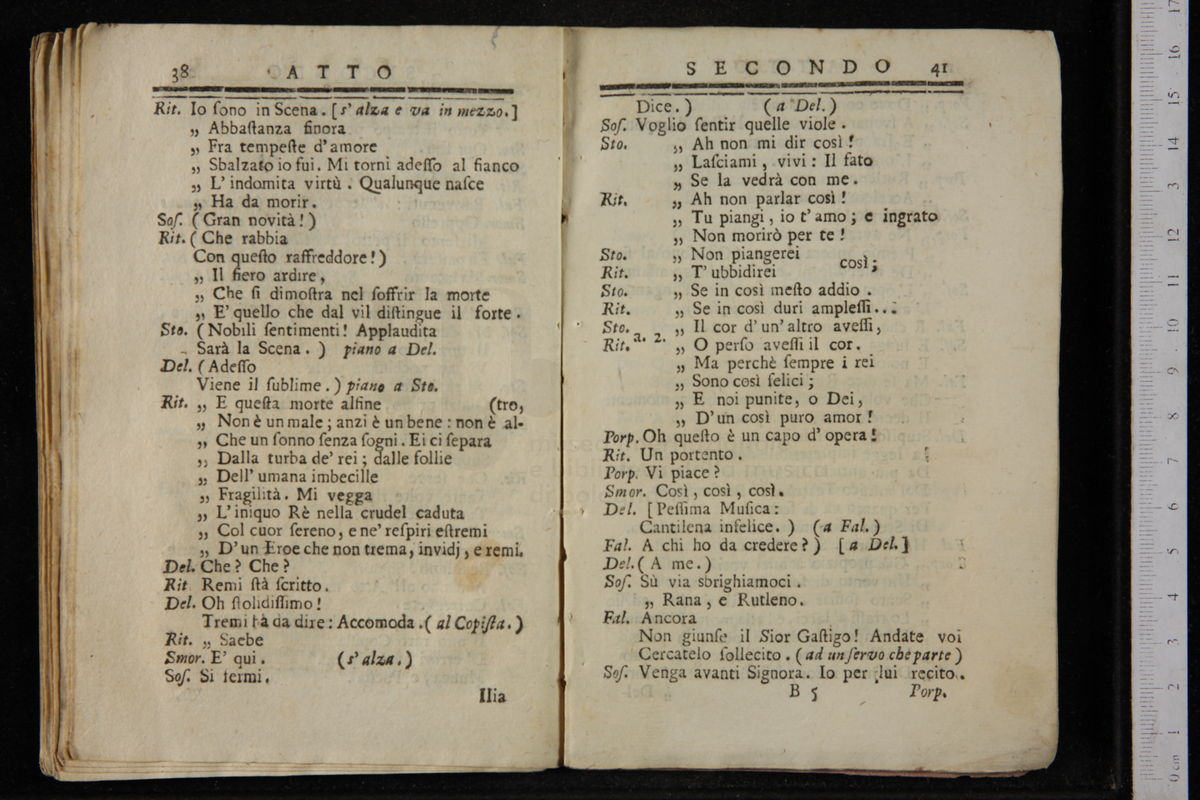 38 ATTO
Rit. Io ſono in Scena. [s' alza e va in mezzo.]
„ Abbaſtanza finora
„ Fra tempeſte d'amore
„ Sbalzato io fui. Mi torni adeſſo al fianco
„ L' indomita virtù. Qualunque naſce
„ Ha da morir.
Soſ. (Gran novità!)
Rit. (Che rabbia
Con queſto raffreddore!)
„ Il fiero ardire,
„ Che ſi dimoſtra nel ſoffrir la morte
„ E' quello che dal vil diſtingue il forte.
Sto. (Nobili ſentimenti! Applaudita
Sarà la Scena. ) piano a Del.
Del. (Adeſſo
Viene il ſublime.) piano a Sto.
Rit. „ E queſta morte alfine (tro,
„ Non è un male; anzi è un bene: non è al-
„ Che un ſonno ſenza ſogni. Ei ci ſepara
„ Dalla turba de' rei; dalle follie
„ Dell' umana imbecille
„ Fragilità. Mi vegga
„ L'iniquo Rè nella crudel caduta
„ Col cuor ſereno, e ne' reſpiri eſtremi
„ D'un Eroe che non trema, invidj, e remi.
Del. Che? Che?
Rit Remi ſtà ſcritto.
Del. Oh ſtolidiſſimo!
Tremi hà da dire: Accomoda.( al Copiſta.)
Rit. „ Saebe
Smor. E' qui. (s' alza.)
Soſ. Si fermi.
Ilia
SECONDO 41
Dice. ) (a Del.)
Soſ. Voglio ſentir quelle viole.
Sto. „ Ah non mi dir così!
„ Laſciami, vivi: Il fato
„ Se la vedrà con me.
Rit. „ Ah non parlar così!
„ Tu piangi, io t'amo; e ingrato
„ Non morirò per te!
Sto. „ Non piangerei
così;
Rit. „ T' ubbidirei
Sto. „ Se in così meſto addio.
Rit. „ Se in così duri ampleſſi...
Sto. „ Il cor d'un'altro aveſſi,
a. 2.
Rit. „ O perſo aveſſi il cor.
„ Ma perchè ſempre i rei
„ Sono così felici;
„ E noi punite, o Dei,
„ D'un così puro amor!
Porp. Oh queſto è un capo d'opera!
Rit. Un portento.
Porp. Vi piace?
Smor. Così, così, così.
Del. [Peſſima Muſica:
Cantilena infelice. ) (a Fal.)
Fal. A chi ho da credere?) [a Del.]
Del. (A me.)
Soſ. Sù via sbrighiamoci.
„ Rana, e Rutleno.
Fal. Ancora
Non giunſe il Sior Gaſtigo! Andate voi
Cercatelo ſollecito. (ad un ſervo che parte)
Soſ. Venga avanti Signora. Io per lui recito.
B 5 Porp.